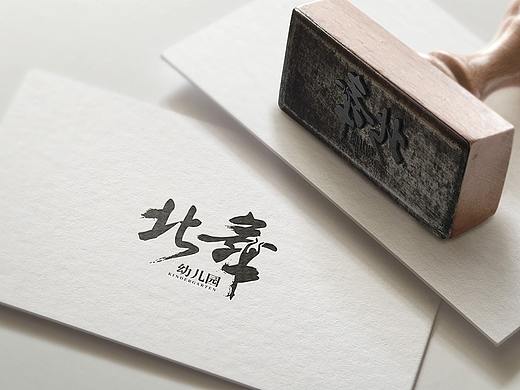 北舞
幼儿园
KINDERGARTEN